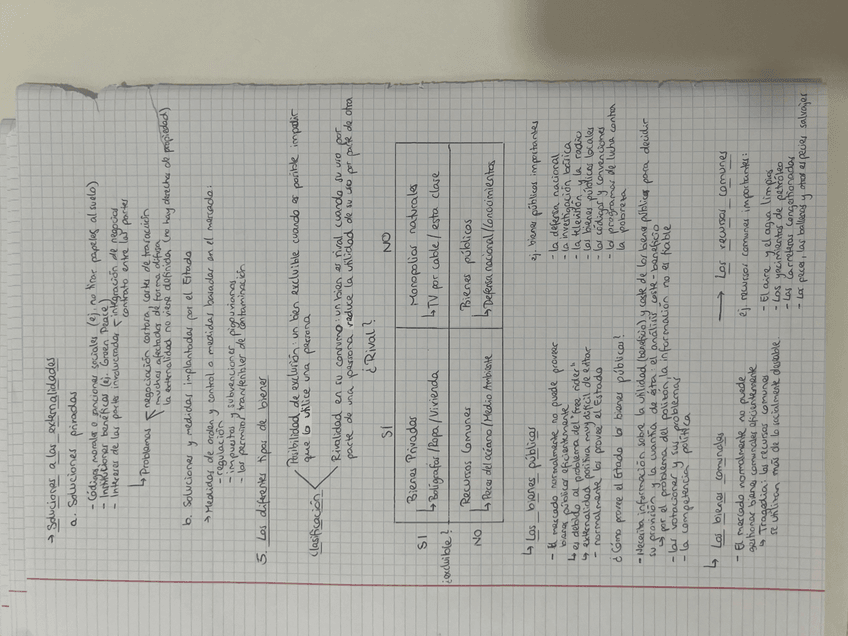 → Soluciones a las externalidades
a. Soluciones privadas
- Códigos morales o sanciones sociales (ej. no tirar papeles al suelo)
- Instituciones benéficas (ej. Green Peace)
- Intereses de las partes involucradas < integración de negocios
contrato entre las partes
↳ Problemas < negociación costosa, costes de transacción
muchos afectados de forma difusa
la externalidad no viene definida (no hay derechos de propiedad)
b. Soluciones y medidas implantadas por el Estado
→ Medidas de orden y control o medidas basadas en el mercado.
- regulación
- impuestos y subvenciones pigouvianos
- los permisos transferibles de contaminación
5. Los diferentes tipos de bienes
Clasificación
Posibilidad de exclusión: un bien excluible cuando es posible impedir
que lo utilice una persona
Rivalidad en su consumo: un bien es rival cuando su uso por
parte de una persona reduce la utilidad de su uso por parte de otra
¿Rival?
SI NO
¿excluible?
SI
Bienes Privados
↳ Bolígrafos/Ropa/Vivienda
Monopolios naturales
↳ TV por cable / esta clase
NO
Recursos Comunes
↳ Peces del océano/Medio Ambiente
Bienes públicos
↳ Defensa nacional/Conocimientos
↳ Los bienes públicos
- El mercado normalmente no puede proveer
bienes públicos eficientemente
↳ es debido al problema del "free rider"
↳ externalidad positiva muy difícil de evitar
- normalmente los provee el Estado
ej. bienes públicos importantes
- la defensa nacional
- la investigación básica
- la televisión y la radio
- los bienes públicos locales
- los códigos y convenciones
- los programas de lucha contra
la pobreza
¿Cómo provee el Estado los bienes públicos?
- Necesita información sobre la utilidad (beneficio) y coste de los bienes públicos para decidir
su provisión y la cuantía de ésta: el análisis coste-beneficio
↳ por el problema del polizón, la información no es fiable
- las votaciones y sus problemas
- la competencia política
↳ Los bienes comunales → Los recursos comunes
- El mercado normalmente no puede
gestionar bienes comunales eficientemente
↳ Tragedia: los recursos comunes
se utilizan más de lo socialmente deseable
ej. recursos comunes importantes:
- El aire y el agua limpios
- Los yacimientos de petróleo
- Las carreteras congestionadas
- Los peces, las ballenas y otras especies salvajes